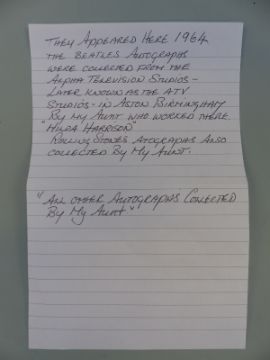 THEY APPEARED HERE 1964
THE BEATLES AUTOGRAPHS
WERE COLLECTED FROM THE
ALPHA TELEVISION STUDIOS -
LATER KNOWN AS THE ATV
STUDIOS - IN ASTON BIRMINGHAM
BY MY AUNT WHO WORKED THERE
"HILDA HARRISON"
ROLLING STONES ATOGRAPHS ALSO
COLLECTED BY MY AUNT.
"ALL OTHER AUTOGRAPHS COLLECTED
BY MY AUNT"